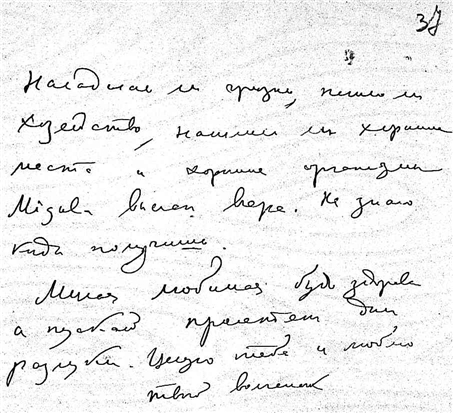 37
Наладилась ли жизнь, пошло ли
хозяйство, нашли ли хорошие
места и хорошие организмы
Migula выслал вчера. Не знаю
когда получишь.
Милая любимая будь здорова
а пускай пролетят дни
разлуки. Целую тебя и люблю
твой